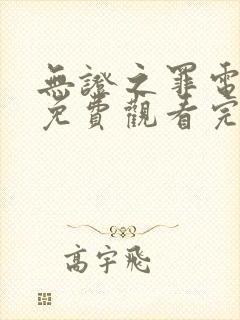 無證之罪電
免費觀看完
高宇飛